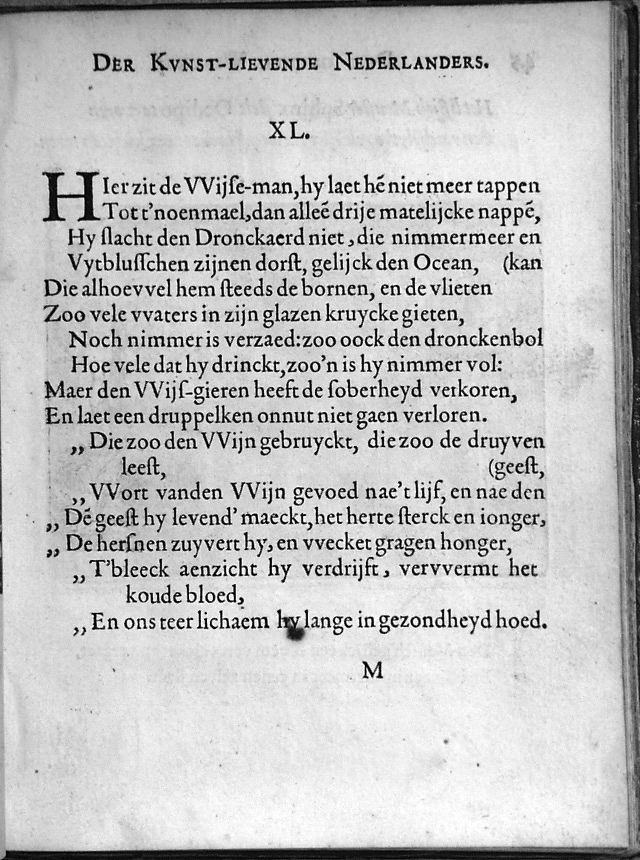 DER KVNST-LIEVENDE NEDERLANDERS.
XL.
HIer zit de VVijſe-man, hy laet hē niet meer tappen
Tot t'noenmael, dan alleē drije matelijcke nappē,
Hy ſlacht den Dronckaerd niet, die nimmermeer en
Vytbluſſchen zijnen dorſt, gelijck den Ocean, (kan
Die alhoevvel hem ſteeds de bornen, en de vlieten
Zoo vele vvaters in zijn glazen kruycke gieten,
Noch nimmer is verzaed: zoo oock den dronckenbol
Hoe vele dat hy drinckt, zoo'n is hy nimmer vol:
Maer den VVijſ-gieren heeft de ſoberheyd verkoren,
En laet een druppelken onnut niet gaen verloren.
„ Die zoo den VVijn gebruyckt, die zoo de druyven
leeſt, (geeſt,
„ VVort vanden VVijn gevoed nae't lijf, en nae den
„ Dē geeſt hy levend' maeckt, het herte ſterck en ionger,
„ De herſnen zuyvert hy, en vvecket gragen honger,
„ T'bleeck aenzicht hy verdrijft, vervvermt het
koude bloed,
„ En ons teer lichaem hy lange in gezondheyd hoed.
M